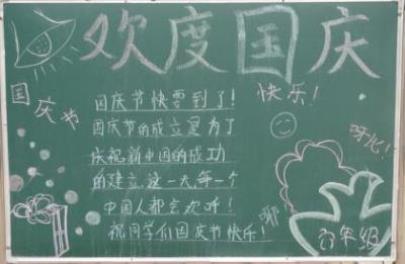 欢度国庆
国庆节
国庆节快要到了！
国庆节的成立是为了
庆祝新中国的成功
的建立,这一天,每一个
中国人都会欢呼！
祝同学们国庆节快乐！
快乐！
呀比！
耶
六年级